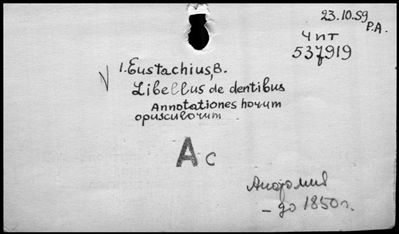 23.10.59
P.A.
4 пт
537919
V 1. Eustachius, B.
Libellus de dentibus
Annotationes horum
opusculorum
Ac
Анатомия
– до 1850 г.